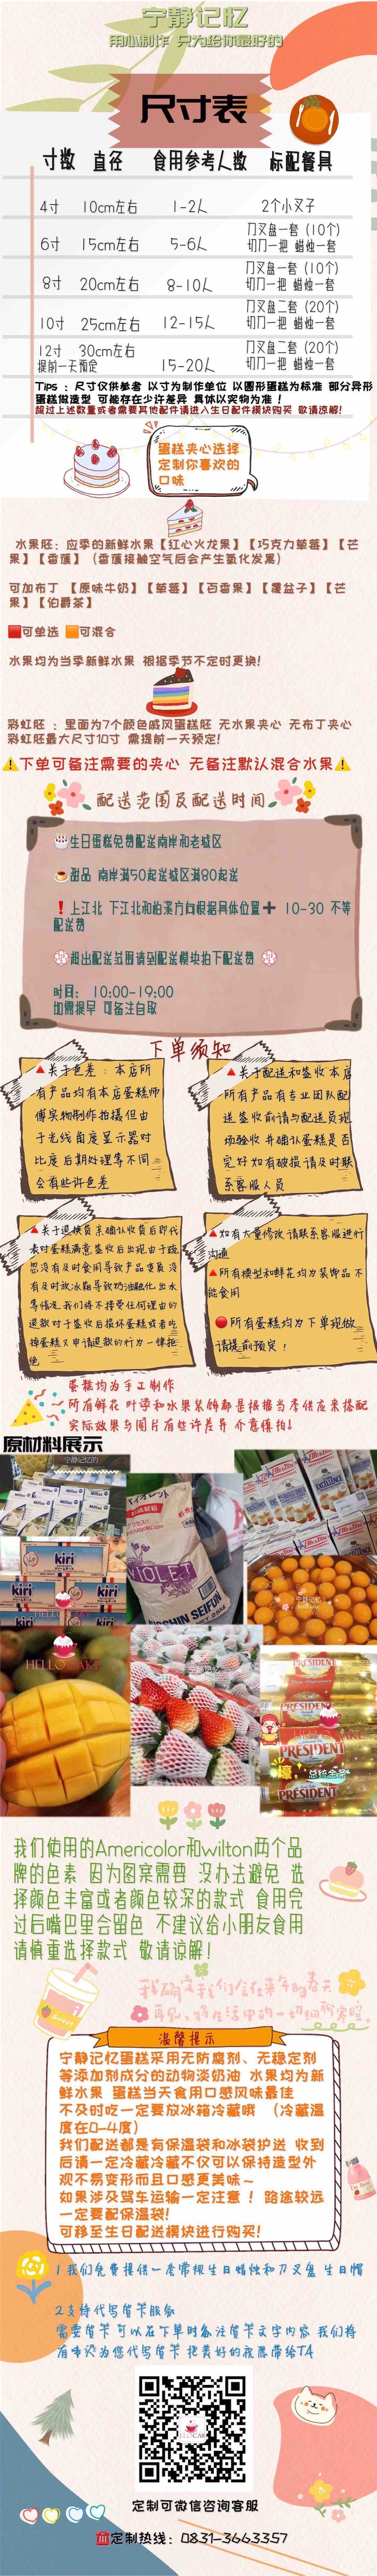 宁静记忆
用心制作 只为给你最好的
尺寸表
寸数 直径 食用参考人数 标配餐具
4寸 10cm左右 1-2人 2个小叉子
6寸 15cm左右 5-6人 刀叉盘一套（10个）
切刀一把 蜡烛一套
8寸 20cm左右 8-10人 刀叉盘一套（10个）
切刀一把 蜡烛一套
10寸 25cm左右 12-15人 刀叉盘二套（20个）
切刀一把 蜡烛一套
12寸 30cm左右 15-20人 刀叉盘二套（20个）
提前一天预定 切刀一把 蜡烛一套
Tips ：尺寸仅供参考 以寸为制作单位 以圆形蛋糕为标准 部分异形
蛋糕做造型 可能存在少许差异 具体以实物为准！
超过上述数量或者需要其他配件请进入生日配件模块购买 敬请谅解!
蛋糕夹心选择
定制你喜欢的
口味
水果胚：应季的新鲜水果【红心火龙果】【巧克力草莓】【芒
果】【香蕉】（香蕉接触空气后会产生氧化发黑）
可加布丁 【原味牛奶】【草莓】【百香果】【覆盆子】【芒
果】【伯爵茶】
可单选 可混合
水果均为当季新鲜水果 根据季节不定时更换!
彩虹胚 ：里面为7个颜色戚风蛋糕胚 无水果夹心 无布丁夹心
彩虹胚最大尺寸10寸 需提前一天预定!
下单可备注需要的夹心 无备注默认混合水果
配送范围及配送时间
生日蛋糕免费配送南岸和老城区
甜品 南岸满50起送城区满80起送
上江北 下江北和柏溪方向根据具体位置➕ 10-30 不等
配送费
超出配送范围请到配送模块拍下配送费
时间： 10:00-19:00
如需提早 可备注自取
下单须知
关于色差：本店所
有产品均有本店蛋糕师
傅实物制作拍摄但由
于光线角度显示器对
比度后期处理等不同
会有些许色差
关于配送和签收本店
所有产品有专业团队配
送签收前请与配送员现
场验收并确认蛋糕是否
完好如有破损请及时联
系客服人员
关于退换货亲确认收货后即代
表对蛋糕满意签收后出现由于疏
忽没有及时食用导致产品变质没
有及时放冰箱导致奶油融化出水
等情况我们将不接受任何理由的
退款对于签收后损坏蛋糕或者吃
掉蛋糕又申请退款的行为一律拒
绝
如有大量修改请联系客服进行
沟通
所有模型和鲜花均为装饰品不
能食用
所有蛋糕均为下单现做
请提前预定！
蛋糕均为手工制作
所有鲜花 叶学和水果装饰都是根据当季供应来搭配
实际效果与图片有些许差异 介意慎拍！
原材料展示
宁静记忆的
Millac
kiri
kiri
kiri
HELLO CAKE
VIOLET
NISSHIN SEIFUN
Elle & Vire
EXCELLENCE
宁静记忆
HELLO CAKE
PRESIDENT
PRESIDENT
PRESIDENT
PRESIDENT
壕
总统金条
我们使用的Americolor和wilton两个品
牌的色素 因为图案需要 没办法避免 选
择颜色丰富或者颜色较深的款式 食用完
过后嘴巴里会留色 不建议给小朋友食用
请慎重选择款式 敬请谅解！
Sweet
温馨提示
宁静记忆蛋糕采用无防腐剂、无稳定剂
等添加剂成分的动物淡奶油 水果均为新
鲜水果 蛋糕当天食用口感风味最佳
不及时吃一定要放冰箱冷藏哦 （冷藏温
度在0-4度）
我们配送都是有保温袋和冰袋护送 收到
后请一定冷藏冷藏不仅可以保持造型外
观不易变形而且口感更美味～
如果涉及驾车运输一定注意！路途较远
一定要配保温袋!
可移至生日配送模块进行购买!
1.我们免费提供一套常规生日蜡烛和刀叉盘 生日帽
2.支持代写贺卡服务
需要贺卡可以在下单时备注贺卡文字内容 我们将
有偿为您代写贺卡 把美好的祝愿带给TA
定制可微信咨询客服
定制热线：0831-3663357